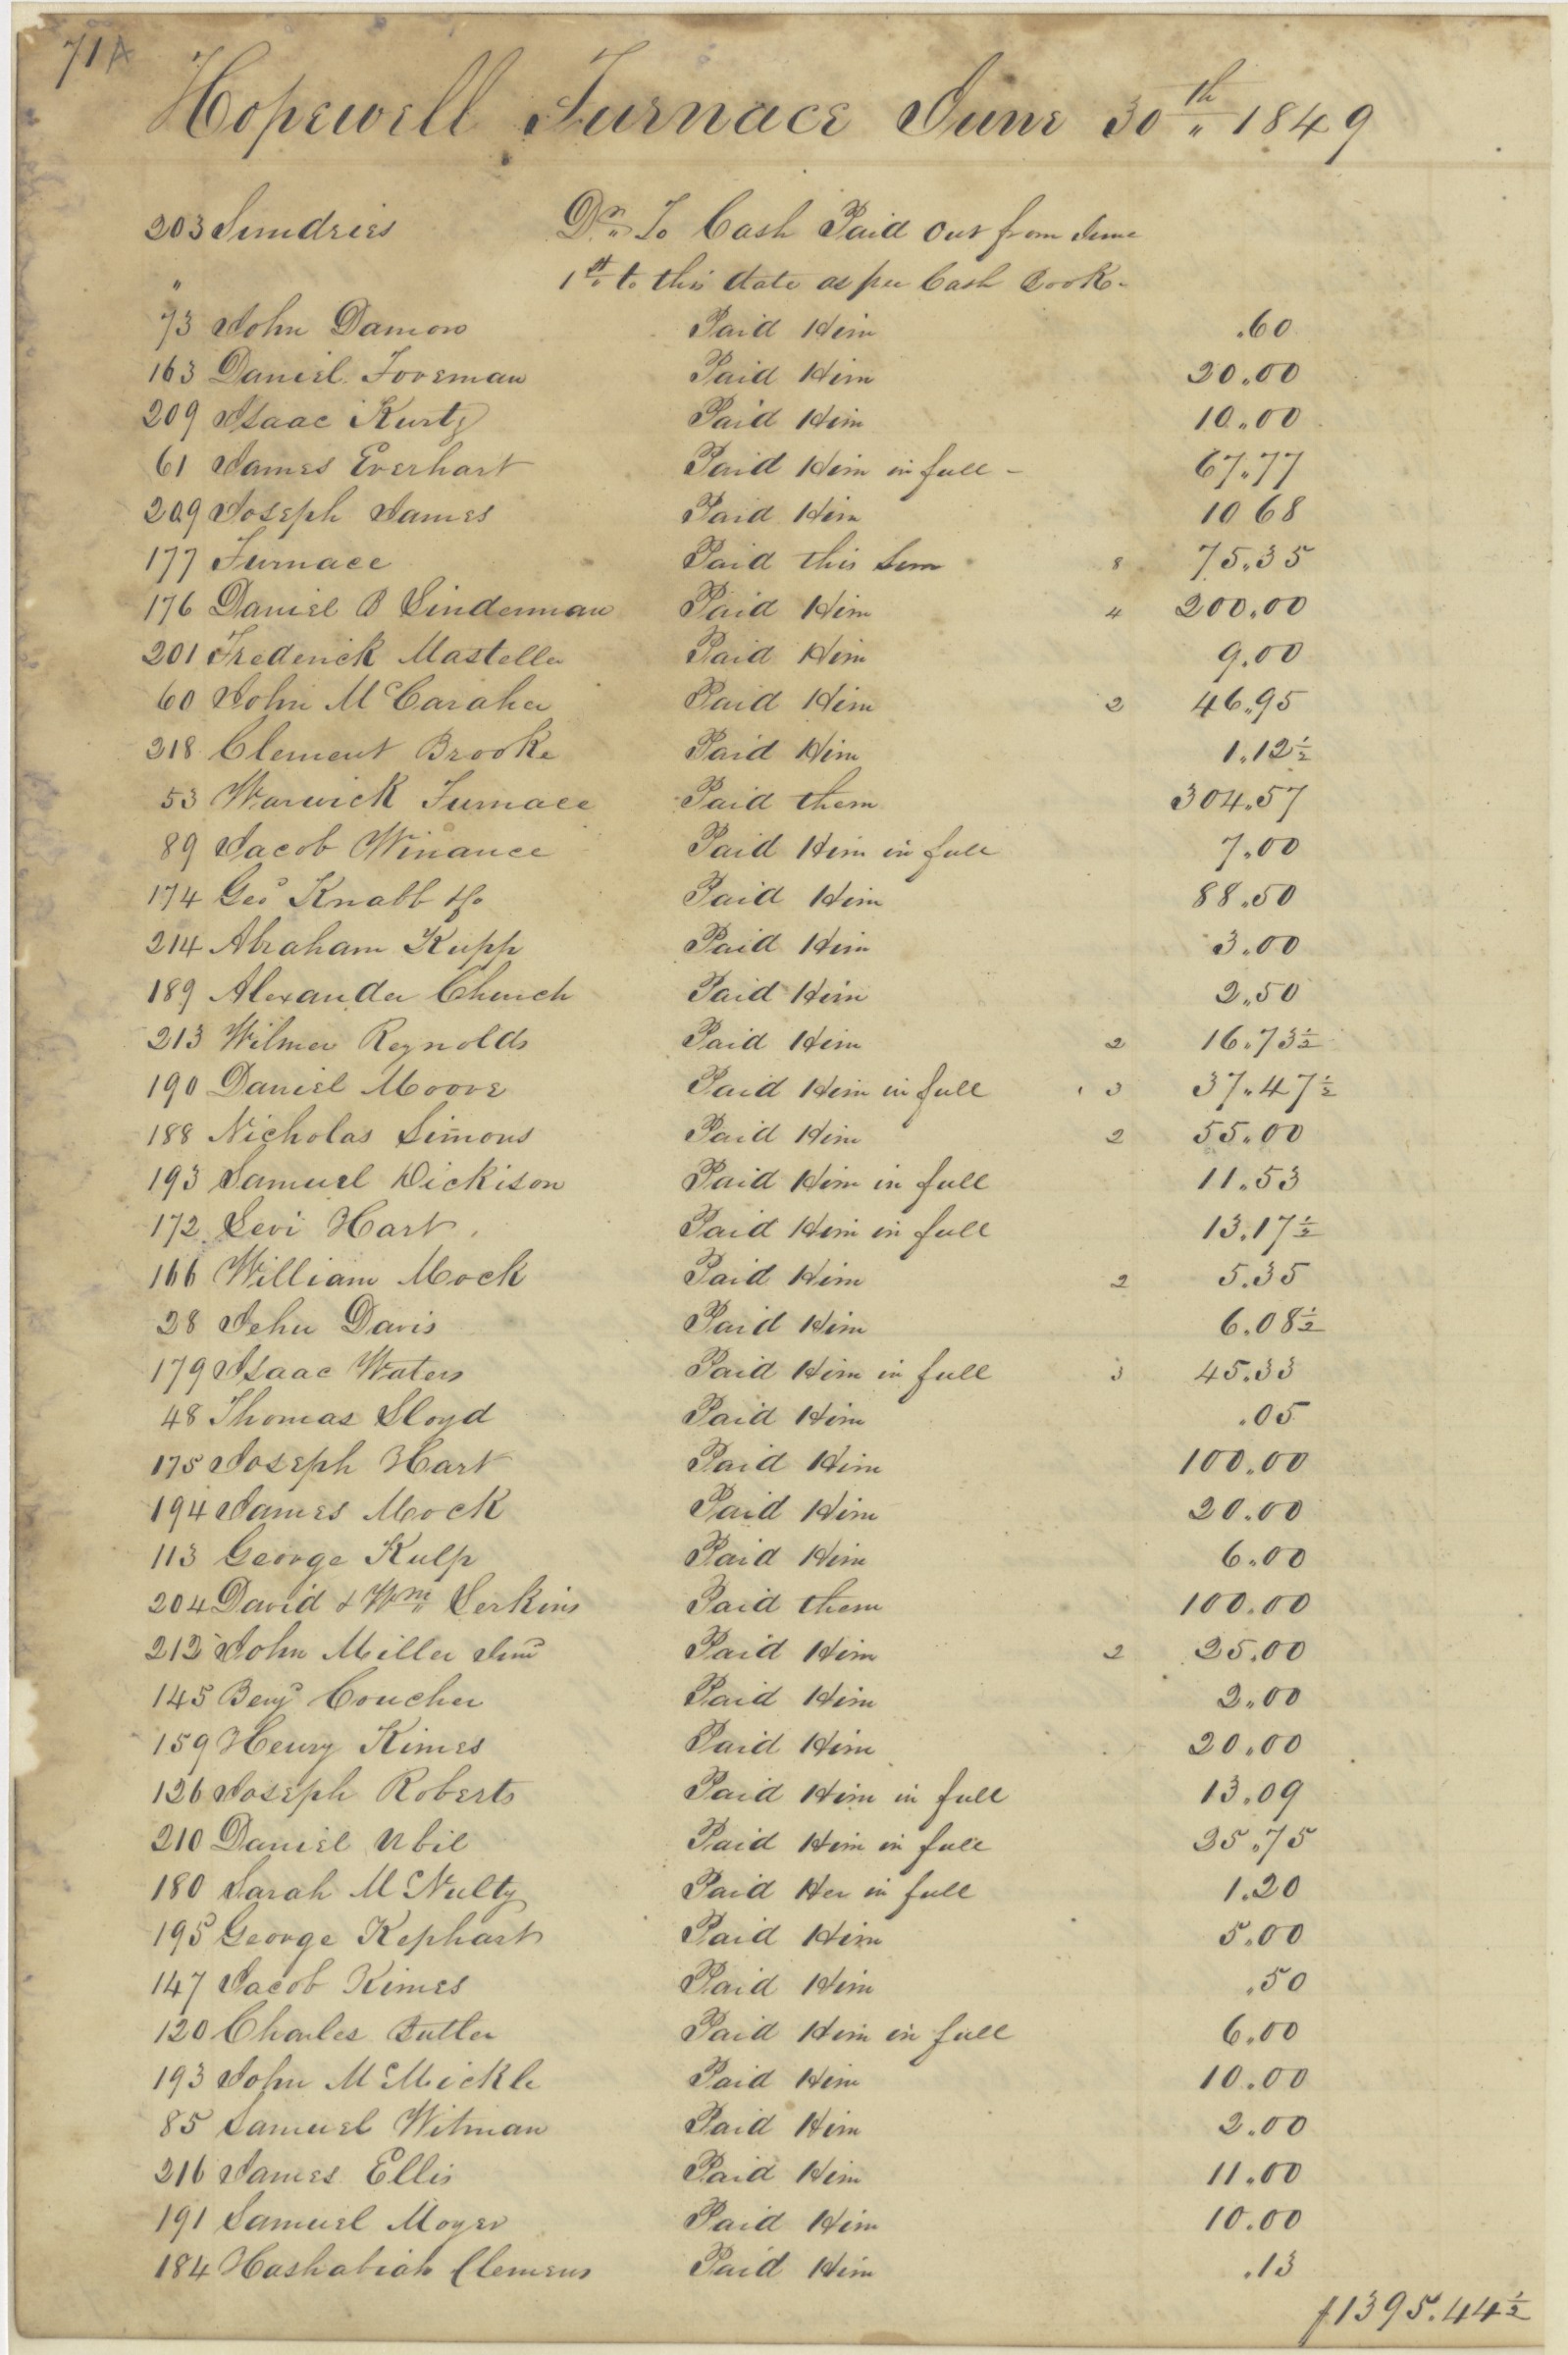 71A
Hopewell Furnace June 30th „ 1849
203 Sundries Dr „ To Cash Paid out from June
„ 1st to this date as per Cash Book -
73 John Damon Paid Him .60
163 Daniel Foreman Paid Him 20.00
209 Isaac Kurtz Paid Him 10.00
61 James Everhart Paid Him in full - 67.77
209 Joseph James Paid Him 10 68
177 Furnace Paid this Sum 8 75.35
176 Daniel B Linderman Paid Him 4 200.00
201 Frederick Masteller Paid Him 9.00
60 John McCaraher Paid Him 2 46.95
218 Clement Brooke Paid Him 1.12½
53 Warwick Furnace Paid them 304.57
89 Jacob Winance Paid Him in full 7.00
174 Geo Knabb &Co Paid Him 88.50
214 Abraham Kupp Paid Him 3.00
189 Alexander Church Paid Him 2.50
213 Wilmer Reynolds Paid Him 2 16.73½
190 Daniel Moore Paid Him in full 3 37.47½
188 Nicholas Simons Paid Him 2 55.00
193 Samuel Dickison Paid Him in full 11.53
172 Levi Hart Paid Him in full 13.17½
166 William Mock Paid Him 2 5.35
28 Jehu Davis Paid Him 6.08½
179 Isaac Waters Paid Him in full 3 45.33
48 Thomas Lloyd Paid Him .05
175 Joseph Hart Paid Him 100.00
194 James Mock Paid Him 20.00
113 George Kulp Paid Him 6.00
204 David & Wm „ Lerkins Paid them 100.00
212 John Miller Junr Paid Him 2 25.00
145 Benj Coucher Paid Him 2.00
159 Henry Kimes Paid Him 20.00
126 Joseph Roberts Paid Him in full 13.09
210 Daniel Ubil Paid Him in full 25.75
180 Sarah McNulty Paid Her in full 1.20
195 George Kephart Paid Him 5.00
147 Jacob Kimes Paid Him .50
120 Charles Butler Paid Him in full 6.00
193 John McMickle Paid Him 10.00
85 Samuel Witman Paid Him 2.00
216 James Ellis Paid Him 11.00
191 Samuel Moyer Paid Him 10.00
184 Hashabiah Clemens Paid Him .13
$1395.44½